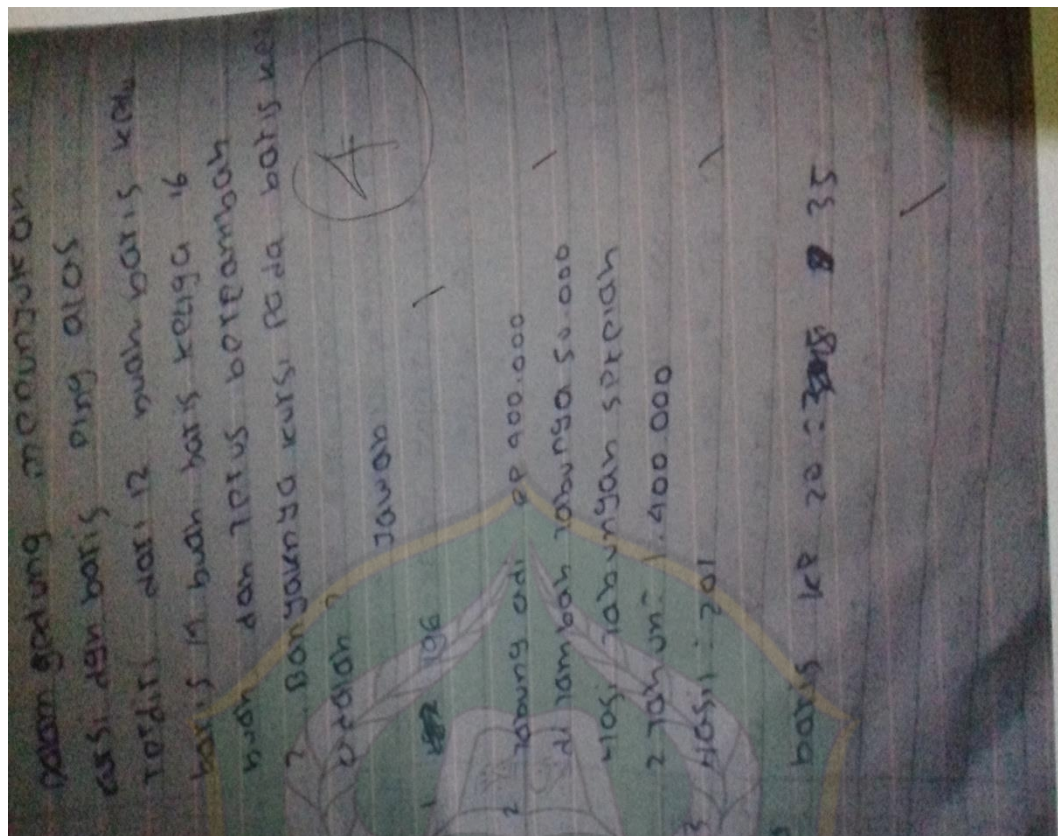 dalam gedung pertunjukan
arsi dgn baris ping
terdiri dari 12 buah baris
baris 14 buah baris ketiga 16
buah dan terus bertambah
? Banyaknya kursi pada baris ke
adalah ?
A
Jawab
1 196
2 tabung adi rp 900.000
di tambah tabunga 50.000
Hasi tabungan setelah
2 tahun = 1.400.000
3 Hasil : 201
baris ke 20 : 35